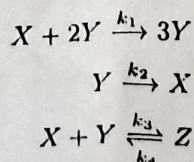 X + 2Y \xrightarrow{k_1} 3Y
Y \xrightarrow{k_2} X
X + Y \underset{k_4}{\overset{k_3}{\rightleftharpoons}} Z